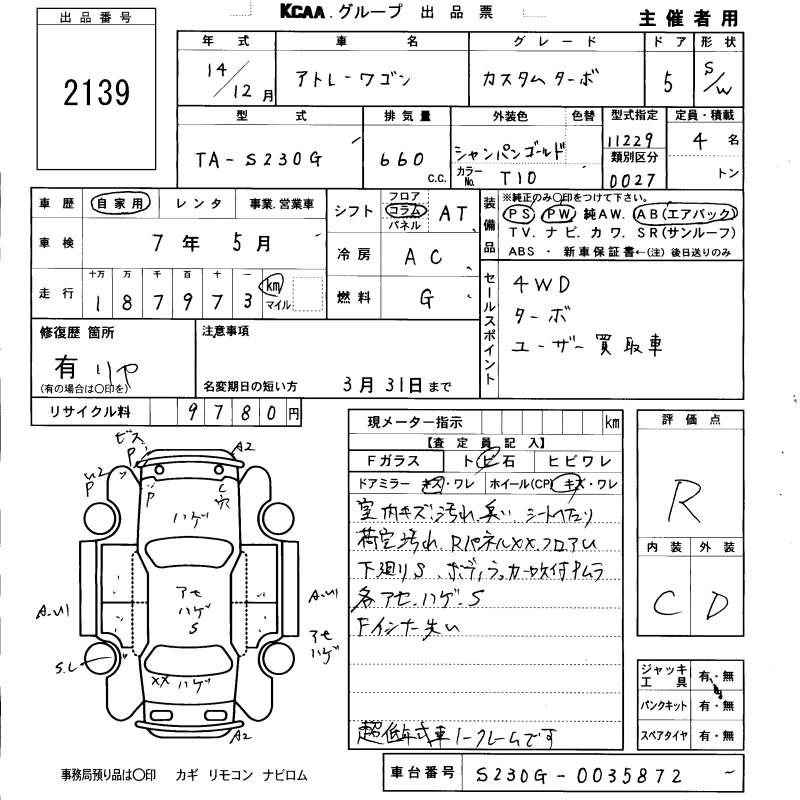 KCAA.グループ 出品票
主催者用
出品番号
2139
年式 車名 グレード ドア 形状
14/12月 アトレーワゴン カスタムターボ 5 S/W
型式 排気量 外装色 色替 型式指定 定員・積載
TA-S230G 660 c.c. シャンパンゴールド 11229 4 名
カラーNo. T10 類別区分 0027 トン
車歴 自家用 レンタ 事業.営業車
車検 7年 5月
走行 十万 万 千 百 十 一
1 8 7 9 7 3 km マイル
シフト フロア コラム パネル AT
冷房 AC
燃料 G
装備品 ※純正のみ〇印をつけて下さい。
PS PW 純AW. AB(エアバック)
TV. ナビ. カワ. SR(サンルーフ)
ABS ・ 新車保証書←(注) 後日送りのみ
セールスポイント
4WD
ターボ
ユーザー買取車
修復歴 箇所
有 リヤ
(有の場合は〇印を)
注意事項
名変期日の短い方 3月31日まで
リサイクル料 9780円
現メーター指示 km
【査定員記入】
Fガラス トビ石 ヒビワレ
ドアミラー キズ・ワレ ホイール(CP) キズ・ワレ
室内キズ.汚れ.臭い.シートヘタリ
荷室汚れ.RパネルXX.フロアU
下廻りS.ボディ.ラッカー吹付ムラ
各アセ.ハゲ.S
Fインナー失い
超低年式車ノークレームです
評価点
R
内装 外装
C D
ジャッキ工具 有・無
パンクキット 有・無
スペアタイヤ 有・無
ビス
P
A2
U2
P
P
C
穴
ハゲ
アセ
ハゲ
S
A.U1
A.U1
アセ
ハゲ
S.C
XX ハゲ
A2
事務局預り品は〇印 カギ リモコン ナビロム
車台番号 S230G-0035872